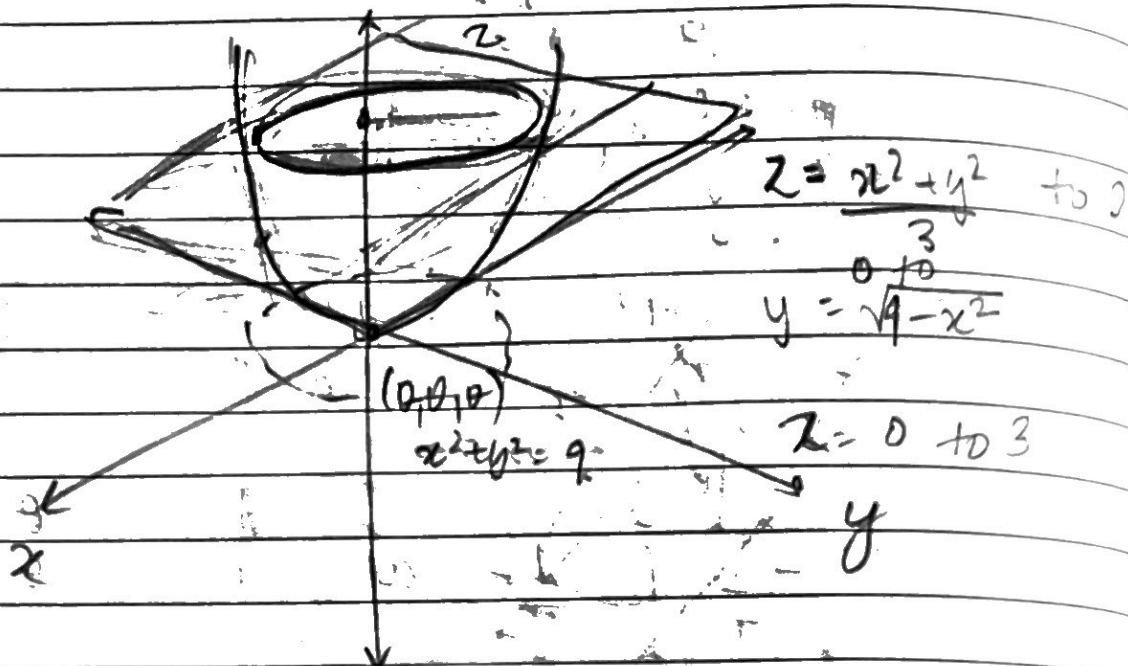 z
z = x² + y² / 3 to
0 to
y = √9 - x²
(0,0,0)
x² + y² = 9
x = 0 to 3
x
y